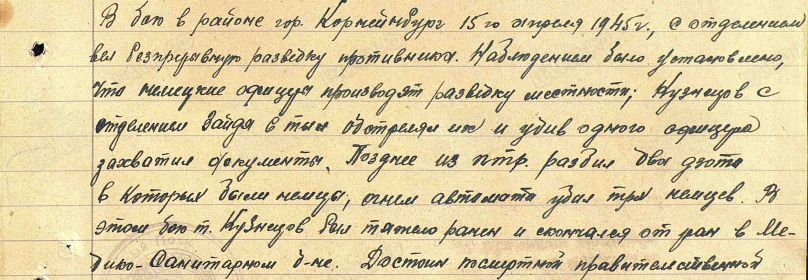 В бою в районе гор. Корнейнбург 15го апреля 1945г., с отделением
вел безпрерывную разведку противника. Наблюдением было установлено,
что немецкие офицеры производят разведку местности; Кузнецов с
отделением зайдя в тыл обстрелял их и убив одного офицера
захватил документы. Позднее из птр. разбил два дзота
в которых были немцы, огнем автомата убил трех немцев. В
этом бою т. Кузнецов был тяжело ранен и скончался от ран в Ме-
дико-Санитарном б-не. Достоин посмертной правительственной